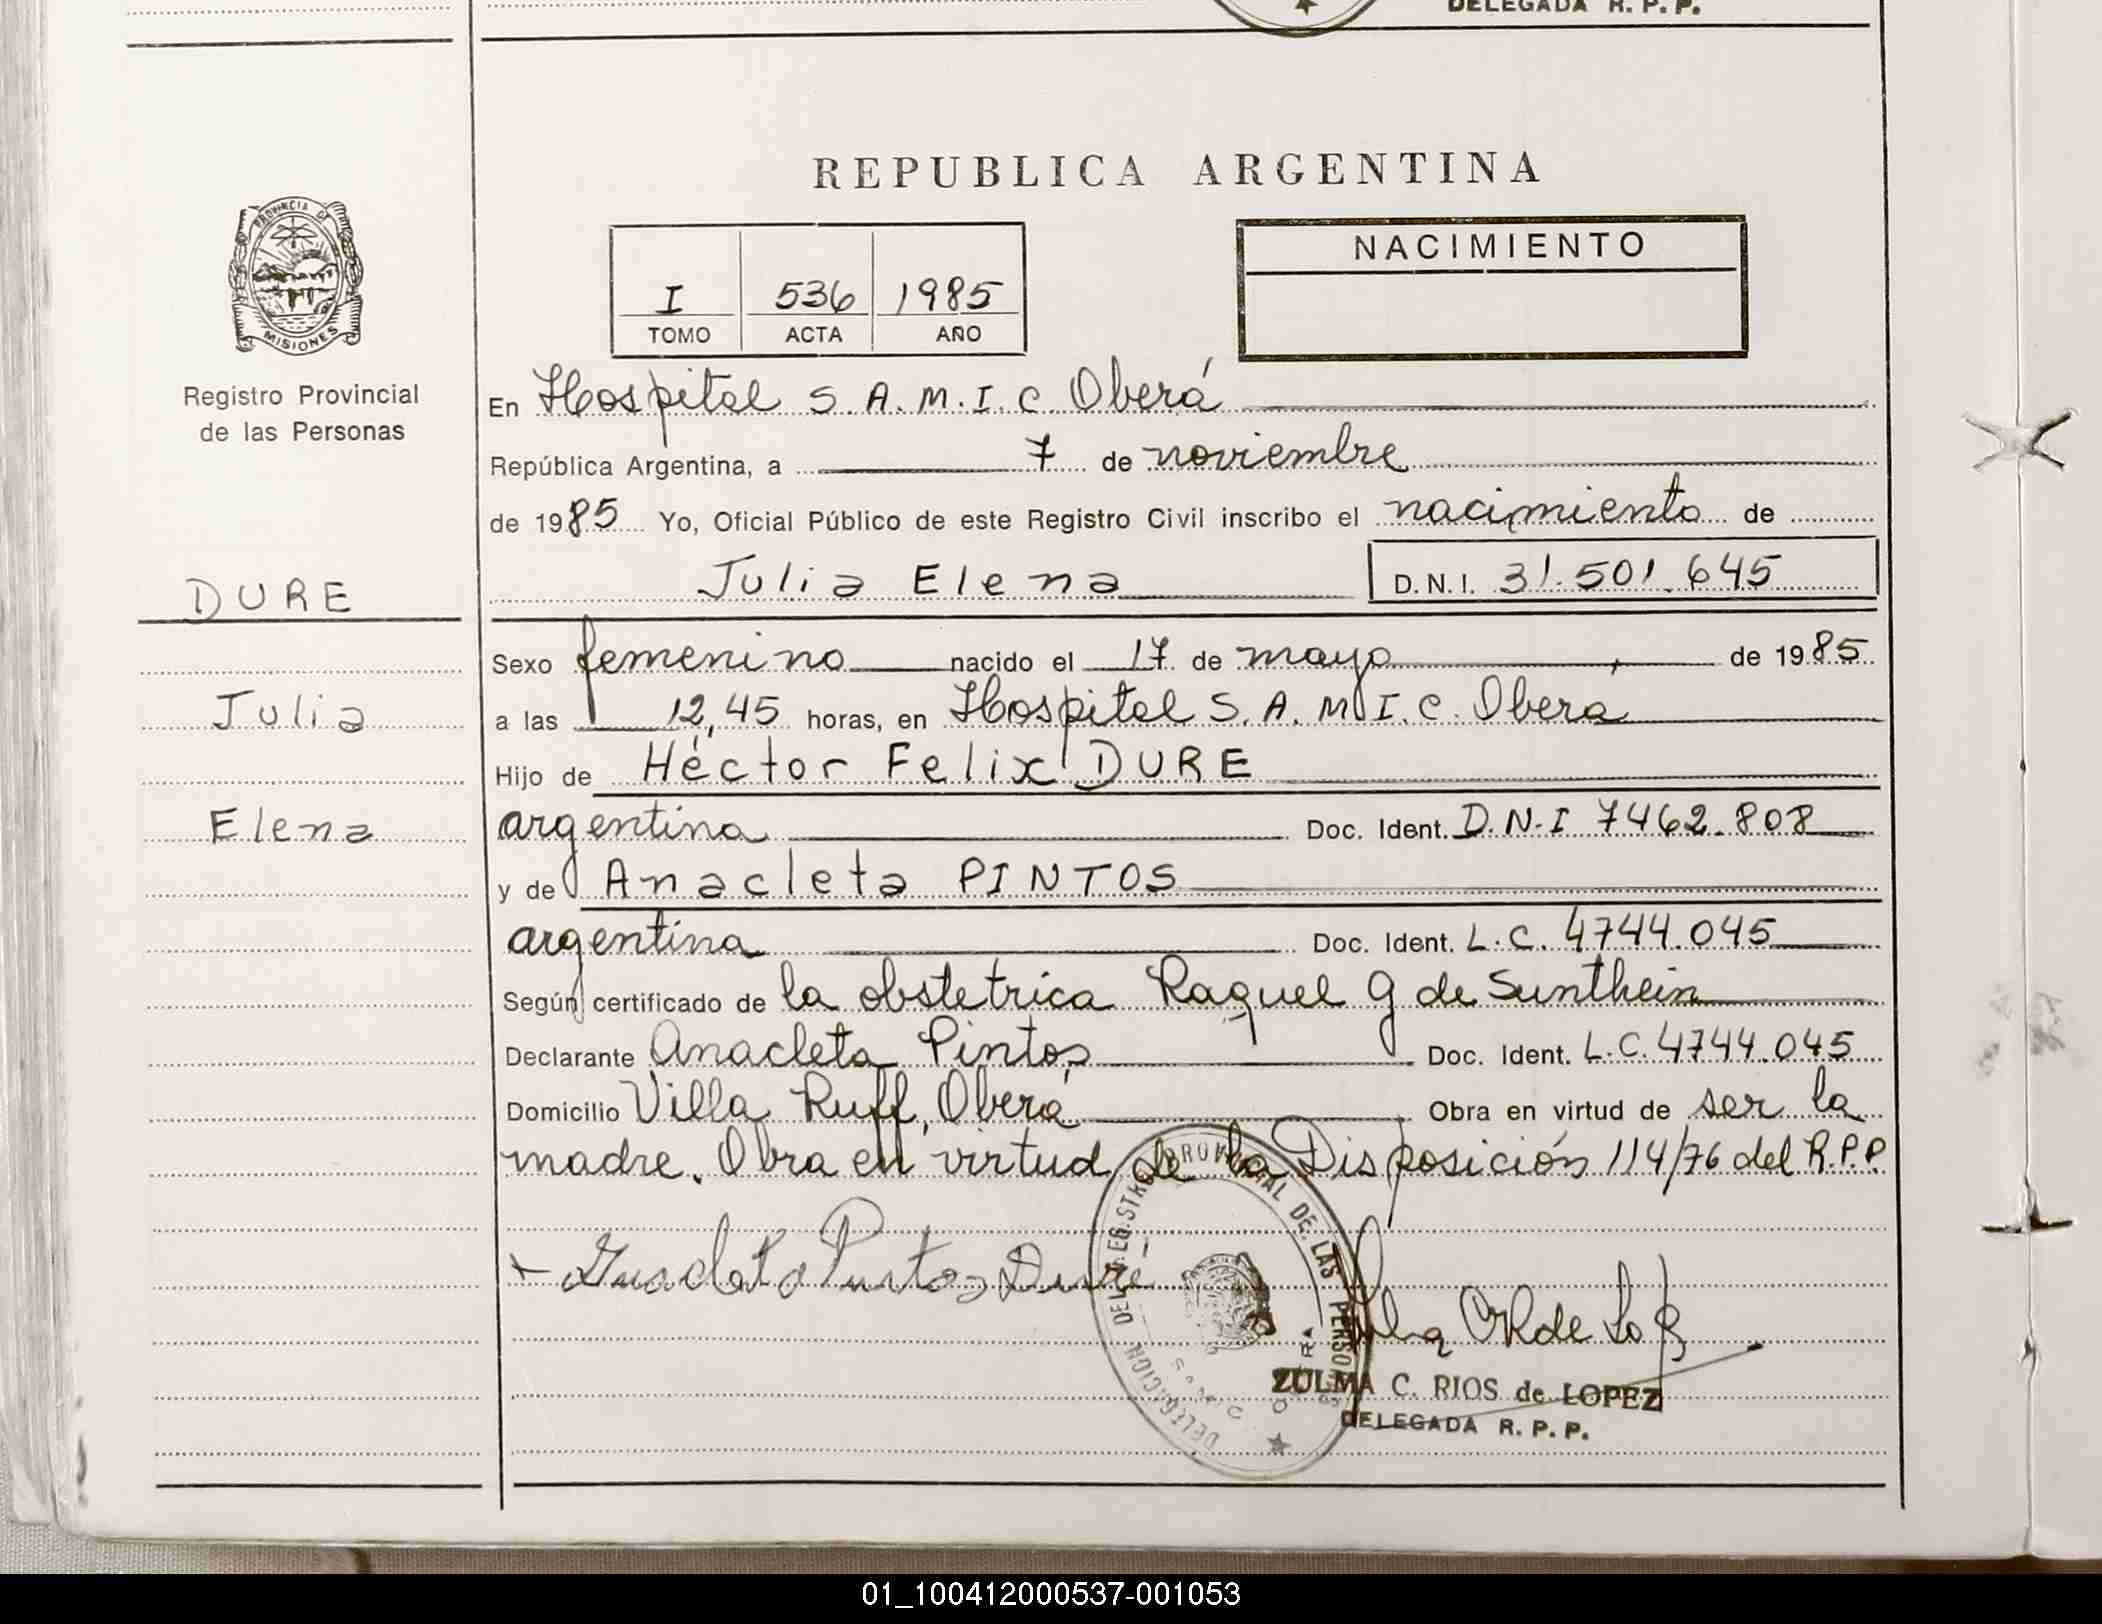 DELEGADA R. P. P.
REPUBLICA ARGENTINA
PROVINCIA DE
MISIONES
Registro Provincial
de las Personas
I 536 1985
TOMO ACTA AÑO
NACIMIENTO
En Hospital S. A. M. I. C. Oberá
República Argentina, a 7 de noviembre
de 1985 Yo, Oficial Público de este Registro Civil inscribo el nacimiento de
Julia Elena D.N.I. 31.501.645
DURE
Julia
Elena
Sexo femenino nacido el 17 de mayo de 1985
a las 12,45 horas, en Hospital S. A. M. I. C. Oberá
Hijo de Héctor Felix DURE
argentina Doc. Ident. D.N.I 7462.808
y de Anacleta PINTOS
argentina Doc. Ident. L.C. 4744.045
Según certificado de la obstetrica Raquel G de Sunthein
Declarante Anacleta Pintos Doc. Ident. L.C. 4744.045
Domicilio Villa Ruff, Oberá Obra en virtud de ser la
madre. Obra en virtud de la Disposición 114/76 del R.P.P.
Anacleta Pintos Dure
DELEGACION DEL REGISTRO PROVINCIAL DE LAS PERSONAS
ZULMA C. RIOS de LOPEZ
DELEGADA R. P. P.
01_100412000537-001053